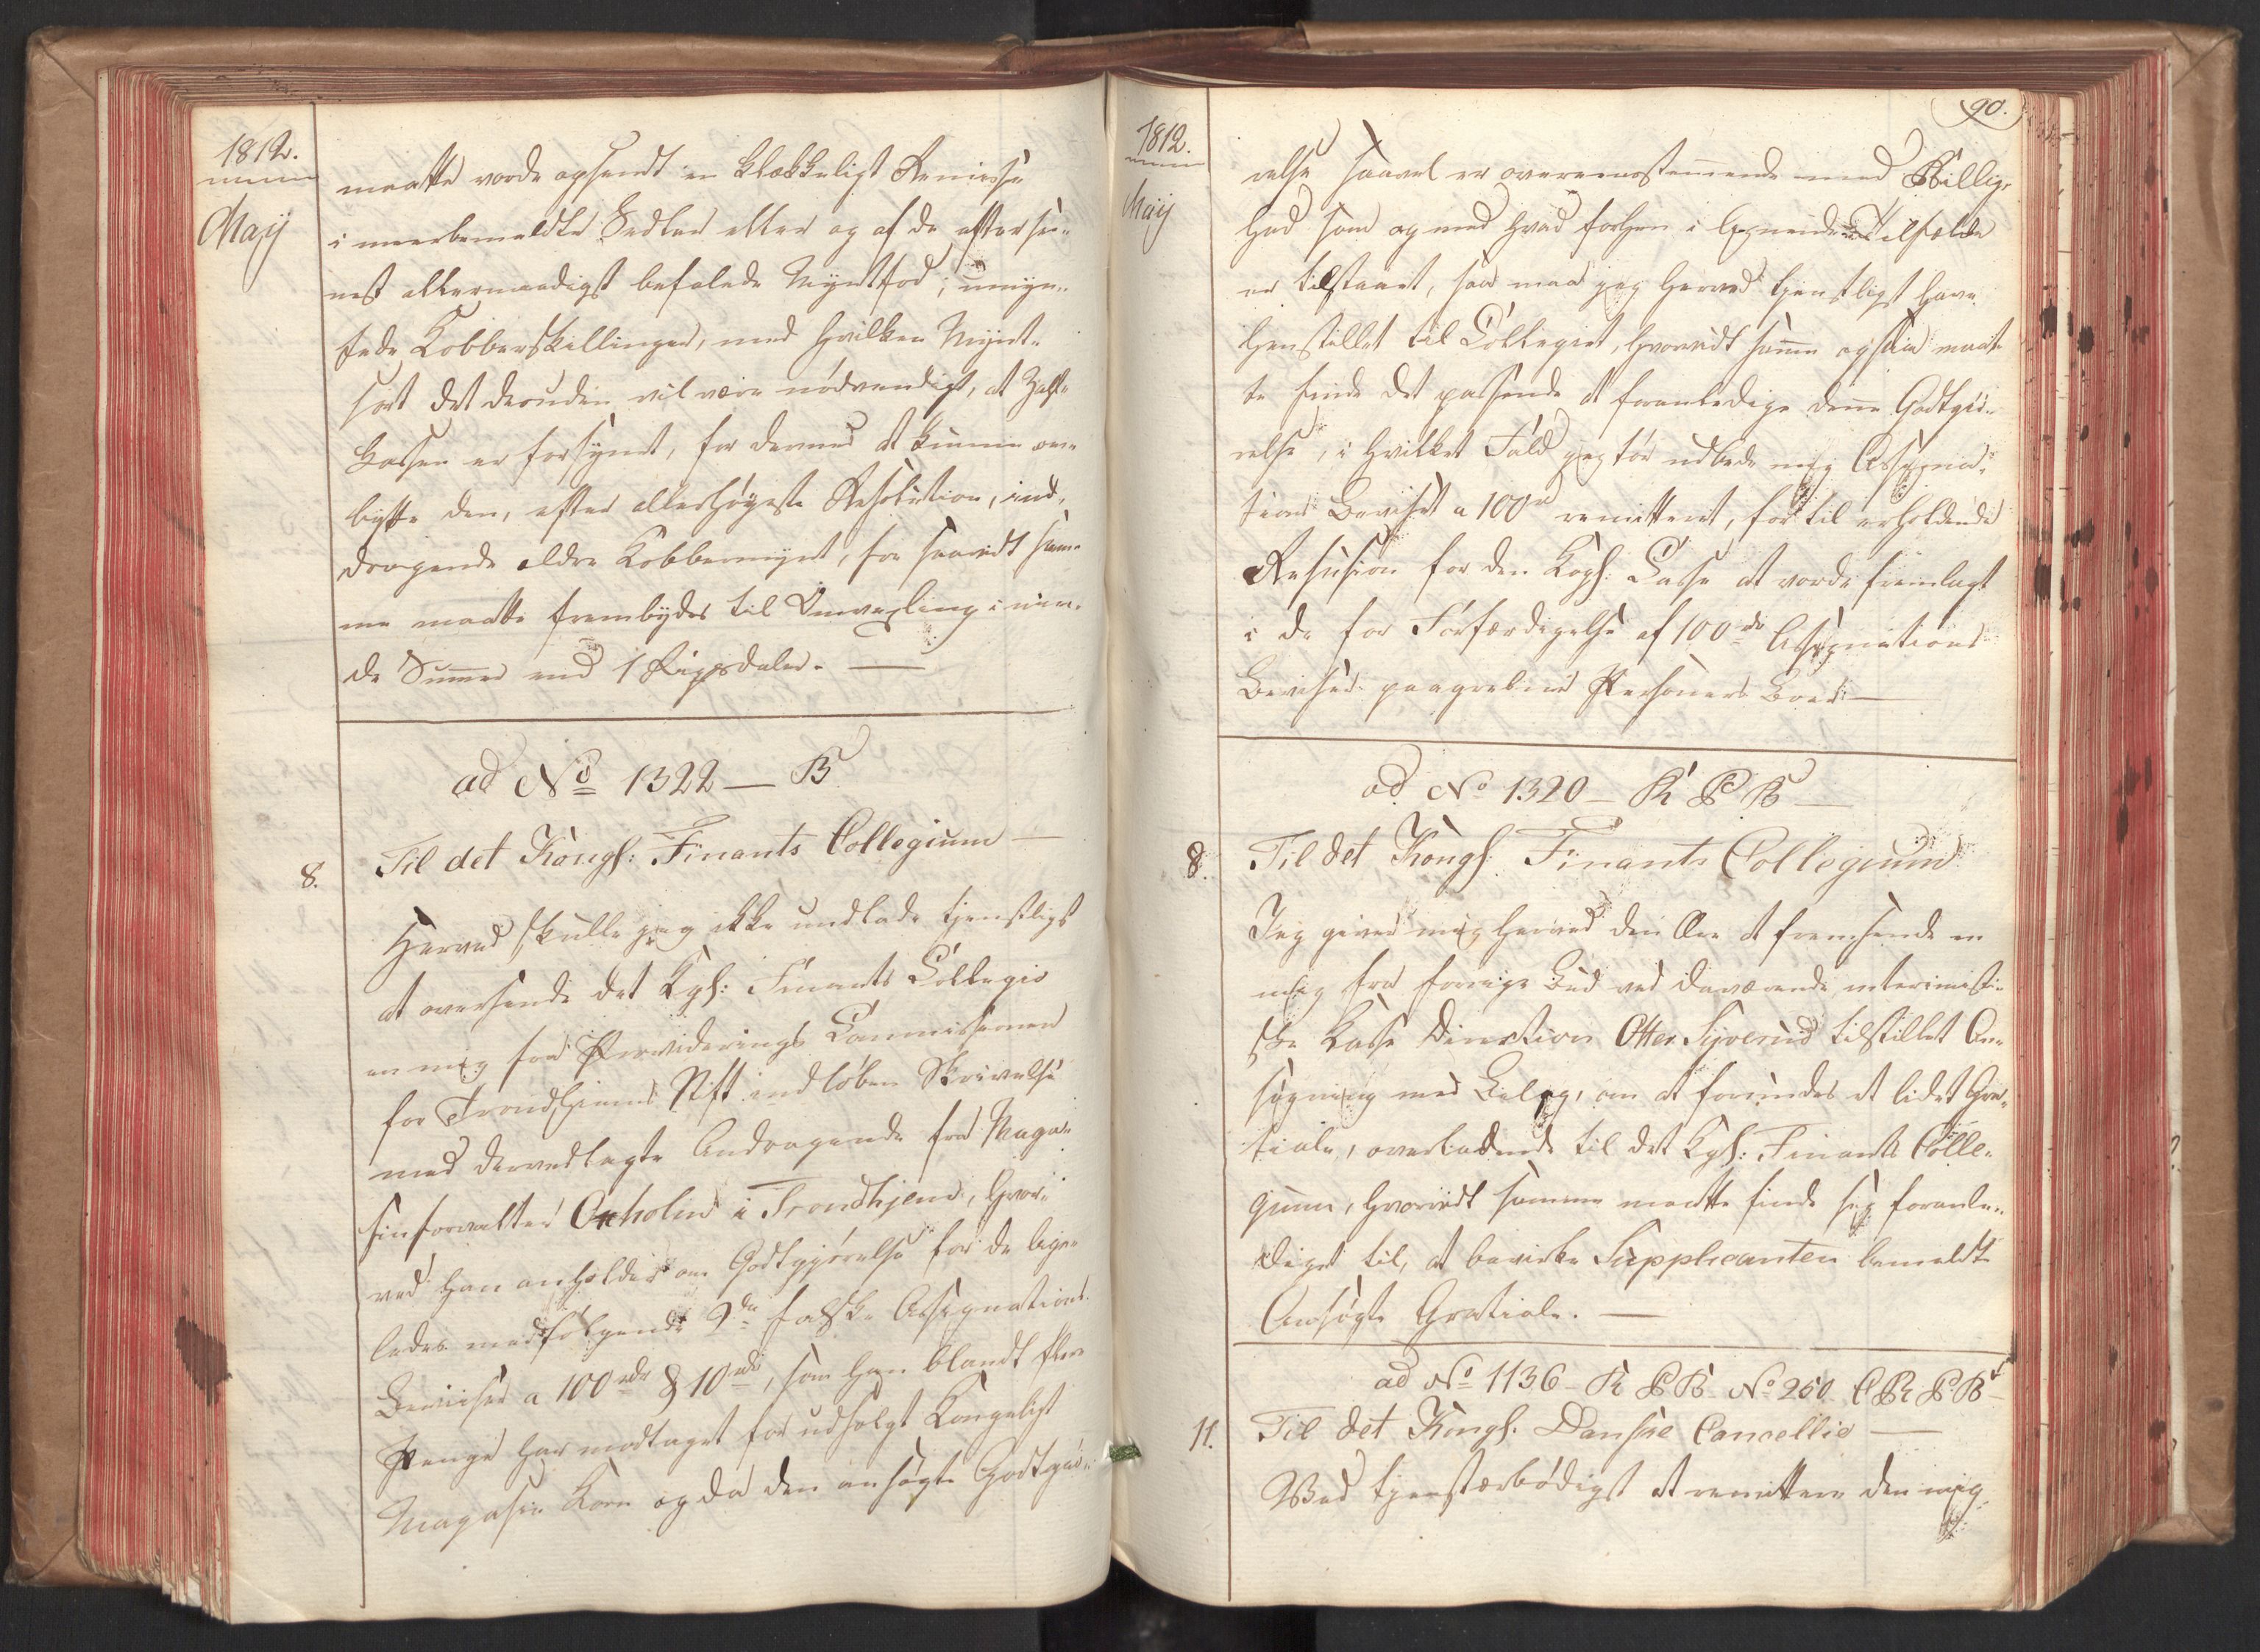 1812.
Maij
maatte vorde opsendt en klækkeligt Remisse
i meerbemeldte Sedler eller og af de efter se-
nest allernaadigst befalede Myntfod, unyn-
tede Kobberskillinger, med hvilken Mynt-
sort det desuden vil være nødvendigt, at Zahl-
kassen er forsynet, for dermed at kunne om-
bytte den, efter allerhøyeste Resolution, ind-
dragende ældre Kobbermynt, for saavidt sam-
me maatte frembydes til Omvexling i min-
de Summer end 1 Rigsdaler. —
ad No 1322 — B
8.
Til det Kongl: Finants Collegium —
Herved skulle jeg ikke undlade tienstligst
at oversende det Kgl: Finants Collegio
en mig fra Providerings Commissionen
for Trondhiems Stift indløben Skrivelse
med dervedlagte Andragende fra Maga-
sinforvalter Oxholm i Trondhjem, hvor-
ved han anholder om Godtgjørelse for de lige-
ledes medfølgende 2de falske Assignations
Beviser a 100rdr & 10rdr, som han blandt flere
Penge har modtaget for udsolgt Kongeligt
Magasin Korn og da den ansøgte Godtgiø-
90.
1812.
Maij
relse saavel er overeensstemmende med Billig-
hed som og med hvad forhen i lignende Tilfælde
er tilstaaet, saa maa jeg herved tienstligst have
henstillet til Collegiet, hvorvidt samme ogsaa maat-
te finde det passende at foranledige denne Godtgiø-
relse, i hvilket Fald jeg tør udbede mig Assigna-
tions Beviset a 100rd remitteret, for til erholdende
Refusion for den Kogl: Casse at vorde fremlagt
i de for Forfærdigelse af 100rdr Assignations
Beviser paagrebne Personers Boe. —
ad No 1320 — K P B —
8.
Til det Kongl Finants Collegium
Jeg giver mig herved den Ære at fremsende en
mig fra forrige Bud ved daværende interimisti-
ske Kasse Direction Otter Syverud tilstillet An-
søgning med Bilag, om at forundes et lidet Gra-
tiale, overladende til det Kgl: Finants Colle-
gium, hvorvidt samme maatte finde sig foranle-
diget til, at bevirke Supplicanten bemeldte
Ansøgte Gratiale. —
ad No 1136 — K P B No 250 C R P B —
11.
Til det Kongl. Danske Cancellie —
Ved tienstærbødigst at remittere den mig